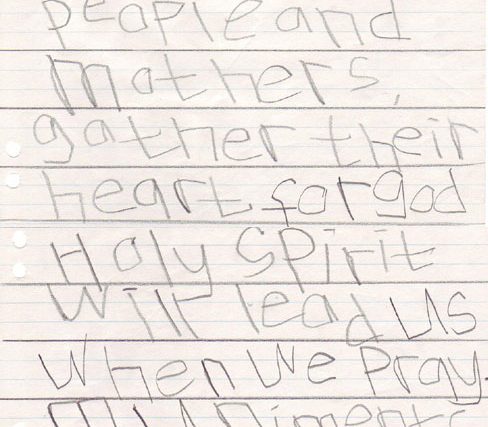 people and
mothers,
gather their
heart for god
Holy Spirit
Will lead us
when we Pray.